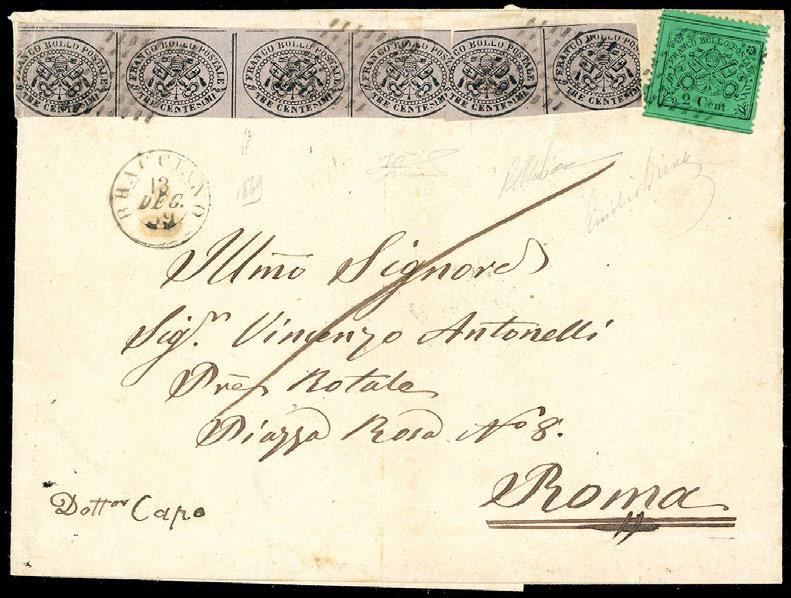 FRANCO BOLLO POSTALE TRE CENTESIMI
FRANCO BOLLO POSTALE TRE CENTESIMI
FRANCO BOLLO POSTALE TRE CENTESIMI
FRANCO BOLLO POSTALE TRE CENTESIMI
FRANCO BOLLO POSTALE TRE CENTESIMI
FRANCO BOLLO POSTALE TRE CENTESIMI
FRANCO BOLLO POSTALE
2 Cent
BRACCIANO
13
DEC.
69
1869
Emilio Diena
Illmõ Signore
Sig.r Vincenzo Antonelli
Prẽ Rotale
Piazza Rosa No 8.
Roma
Dottor Capo